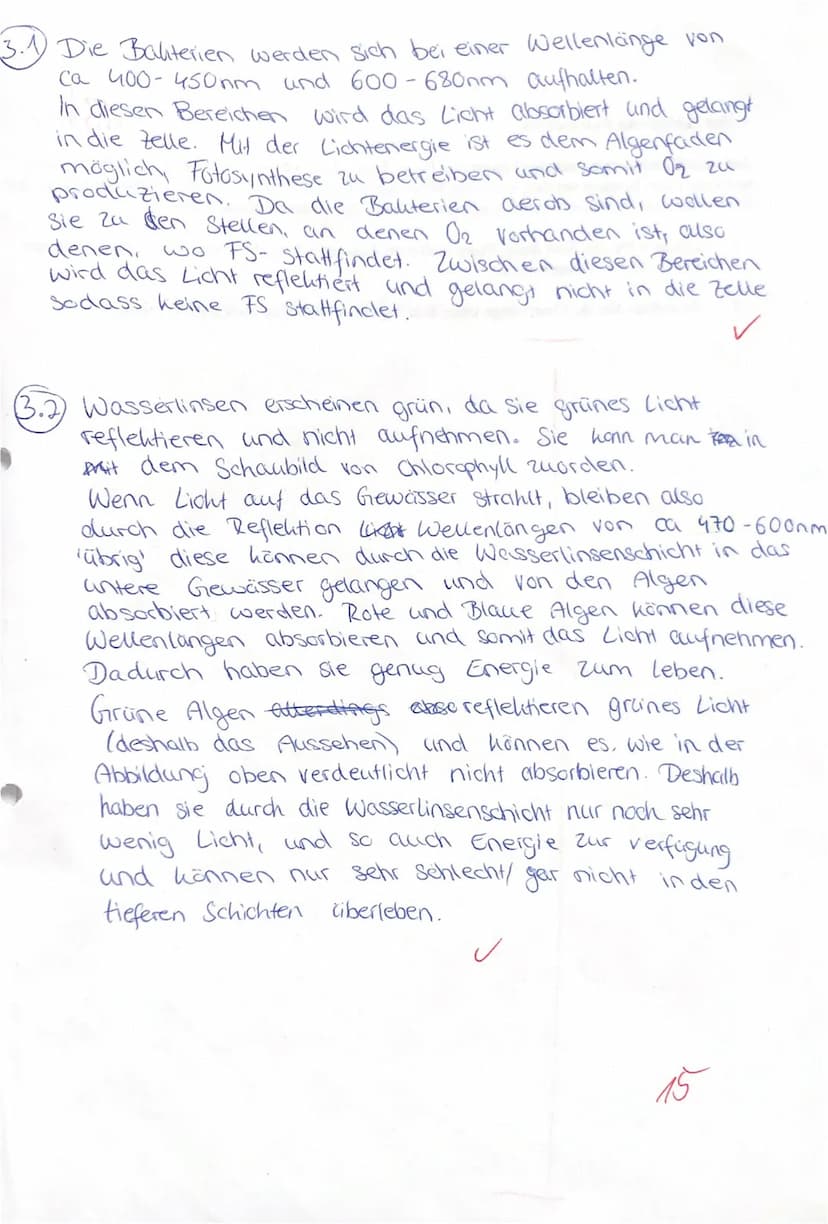 3.1 Die Bakterien werden sich bei einer Wellenlänge von
ca 400-450nm und 600-680nm aufhalten.
In diesen Bereichen wird das Licht absorbiert und gelangt
in die Zelle. Mit der Lichtenergie ist es dem Algenfaden
möglich, Fotosynthese zu betreiben und somit O2 zu
produzieren. Da die Bakterien aerob sind, wollen
sie zu den Stellen, an denen O2 vorhanden ist, also
denen, wo FS- stattfindet. Zwischen diesen Bereichen
wird das Licht reflektiert und gelangt nicht in die Zelle
sodass keine FS stattfindet.
✓
3.2 Wasserlinsen erscheinen grün, da sie grünes Licht
reflektieren und nicht aufnehmen. Sie kann man in
dem Schaubild von Chlorophyll zuorden.
Wenn Licht auf das Gewässer strahlt, bleiben also
durch die Reflektion Wellenlängen von ca 470-600nm
'übrig' diese können durch die Wasserlinsenschicht in das
untere Gewässer gelangen und von den Algen
absorbiert werden. Rote und Blaue Algen können diese
Wellenlängen absorbieren und somit das Licht aufnehmen.
Dadurch haben sie genug Energie zum leben.
Grüne Algen allerdings reflektieren grünes Licht
(deshalb das Aussehen) und können es, wie in der
Abbildung oben verdeutlicht nicht absorbieren. Deshalb
haben sie durch die Wasserlinsenschicht nur noch sehr
wenig Licht, und so auch Energie zur verfügung
und können nur sehr schlecht/ gar nicht in den
tieferen Schichten überleben.
✓
15